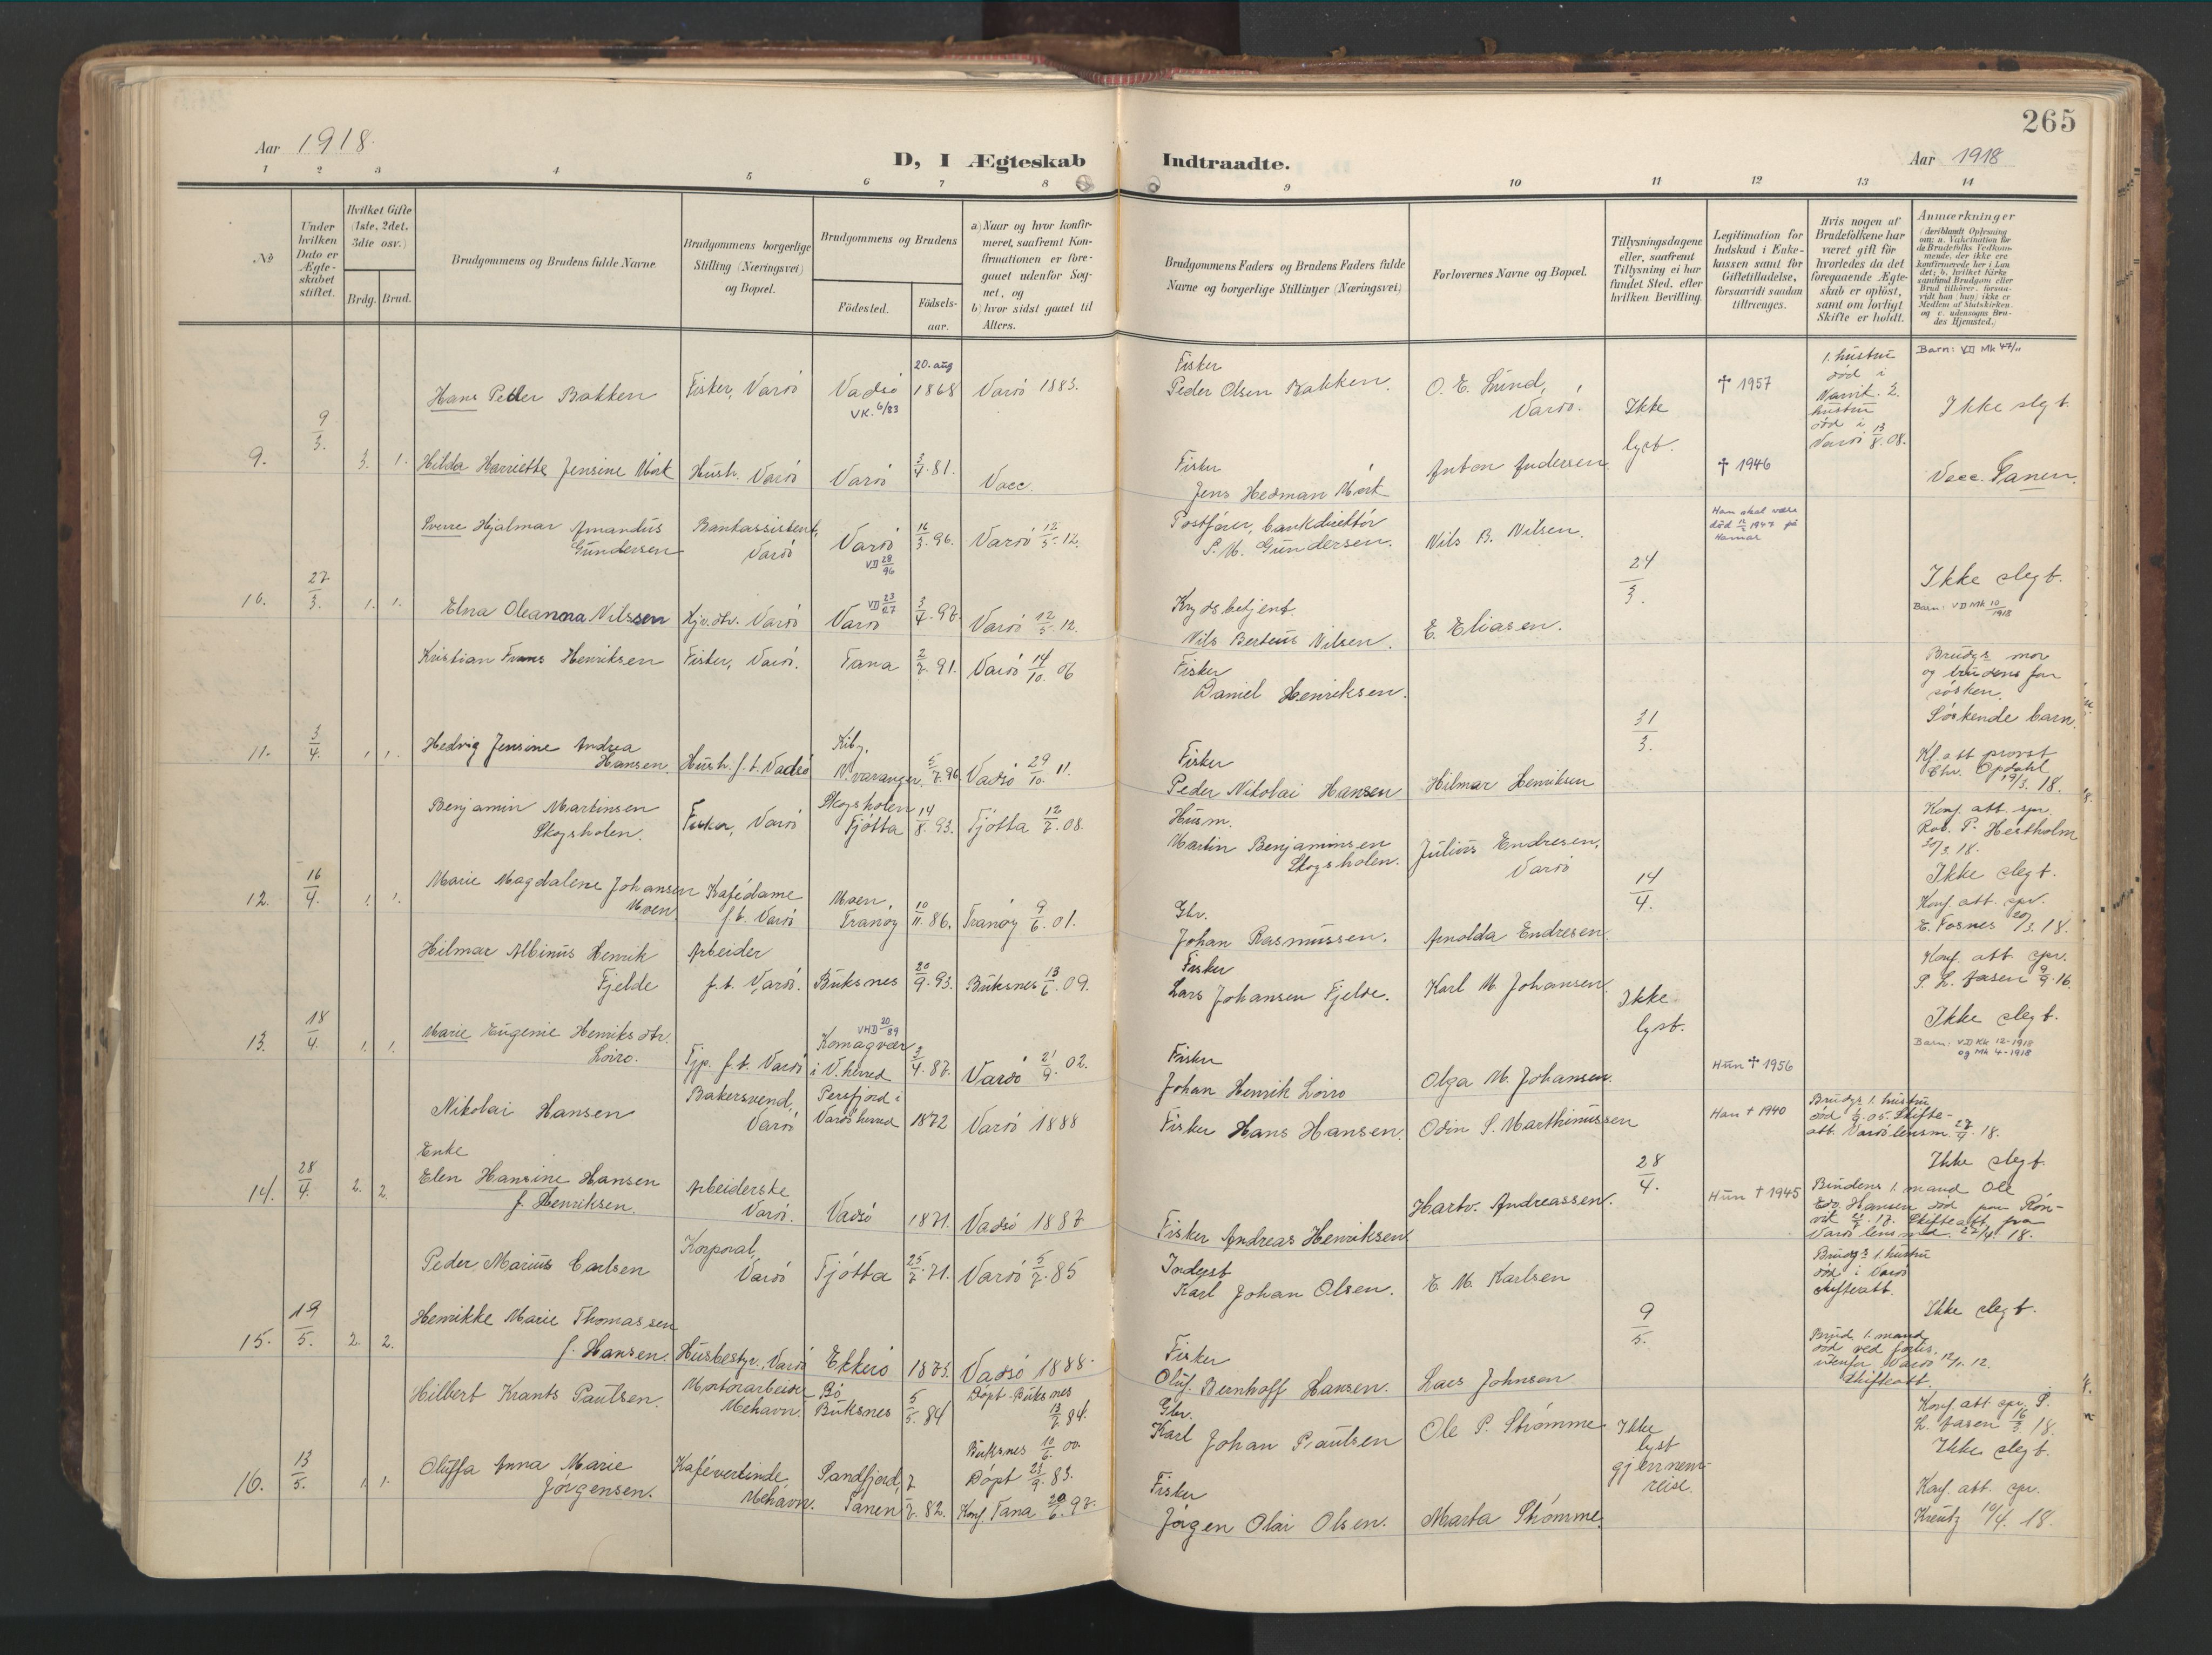 265
Aar 1918.
D, I Ægteskab Indtraadte.
Aar 1918
1 2 3 4 5 6 7 8 9 10 11 12 13 14
No
Under hvilken Dato er Ægteskabet stiftet.
Hvilket Gifte (1ste, 2det, 3die osv.)
Brdg. Brud.
Brudgommens og Brudens fulde Navne
Brudgommens borgerlige Stilling (Næringsvei) og Bopæl.
Brudgommens og Brudens
Födested.
Födselsaar.
a) Naar og hvor konfirmeret, saafremt Konfirmationen er foregaaet udenfor Sognet, og
b) hvor sidst gaaet til Alters.
Brudgommens Faders og Brudens Faders fulde Navne og borgerlige Stillinger (Næringsvei)
Forlovernes Navne og Bopæl.
Tillysningsdagene eller, saafremt Tillysning ei har fundet Sted, efter hvilken Bevilling.
Legitimation for Indskud i Enkekassen samt for Giftetilladelse, forsaavidt saadan tiltrænges.
Hvis nogen af Brudefolkene har været gift för hvorledes da det foregaaende Ægteskab er oplöst, samt om lovligt Skifte er holdt.
Anmærkninger
(deriblandt Oplysning om: a. Vakcination for de Brudefolks Vedkommende, der ikke ere konfirmerede her i Landet; b. hvilket Kirkesamfund Brudgom eller Brud tilhörer, forsaavidt han (hun) ikke er Medlem af Statskirken. og c. udensogns Brudes Hjemsted.)
9. 9/3. 3. 1.
Hans Peder Bakken
Fisker, Vardö
Vadsö
VK. 6/83
20. aug 1868
Vardö 1883.
Fisker
Peder Olsen Bakken.
O. E. Lund, Vardö.
Ikke lyst.
† 1957
1. hustru död i Narvik. 2. hustru död i Vardö 13/8. 08.
Barn: VD Mk 47/11
Ikke slegt.
Hilda Harriette Jensine Mörk
Hush. Vardö
Vardö
3/4. 81.
Vacc.
Fisker
Jens Hedman Mörk
Anton Andersen
† 1946
Vacc. Tanen.
10. 27/3. 1. 1.
Sverre Hjalmar Amandus Gundersen
Bankassistent, Vardö
Vardö
VD 28/96
16/3. 96.
Vardö 12/5. 12.
Postförer, bankdirektör
S. M. Gundersen.
Nils B. Nilsen.
24/3.
Han skal være död 12/3 1947 på Hamar
Ikke slegt.
Barn: VD Mk 10/1918
Elna Oleanna Nilssen
Hjv. dtr. Vardö
VD 23/27
Vardö
3/4. 97.
Vardö 12/5. 12.
Krydsbetjent
Nils Berteus Nilsen.
E. Eliasen.
11. 3/4. 1. 1.
Kristian Frans Henriksen
Fisker, Vardö.
Tana
2/7. 91.
Vardö 14/10. 06
Fisker
Daniel Henriksen.
31/3.
Brudgs mor og brudens far sösken.
Söskende barn.
Hedvig Jensine Andrea Hansen.
Hush. f. t. Vadsö
Kiby, N. varanger.
5/7. 96
Vadsö 29/10. 11.
Fisker
Peder Nikolai Hansen
Hilmar Henriksen
Kf. att provst Chr. Opdahl 19/3. 18.
12. 16/4. 1. 1.
Benjamin Martinsen Skogsholen.
Fisker, Vardö
Skogsholen Tjötta
14/8. 93.
Tjötta 12/7. 08.
Husm.
Martin Benjaminsen Skogsholen.
Julius Endresen, Vardö
14/4.
Konf. att. spr. Rob. P. Hestholm 20/3 18.
Ikke slegt.
Marie Magdalene Johansen Moen
Kafédame f. t. Vardö
Moen, Tranöy
10/11. 86.
Tranöy 9/6. 01.
Gbr.
Johan Rasmussen.
Arnolda Endresen.
Konf. att. spr. E. Fosnes 20/3. 18.
13. 18/4. 1. 1.
Hilmar Albinus Henrik Fjelde
Arbeider f. t. Vardö.
Buksnes
20/9. 93.
Buksnes 13/6. 09.
Fisker
Lars Johansen Fjelde.
Karl M. Johansen.
Ikke lyst.
Konf. att spr. P. L. Aasen 9/9. 16.
Ikke slegt.
Barn: VD Kk 12-1918 og Mk 4-1918
Marie Eugenie Henriksdtr. Loiro.
Tjp. f. t. Vardö
VHD 20/89
Komagvær i V. herred
3/4. 87.
Vardö 21/9. 02.
Fisker
Johan Henrik Loiro
Olga M. Johansen.
Hun † 1956
14. 28/4. 2. 2.
Nikolai Hansen
Bakersvend, Vardö
Persfjord i Vardö herred
1872
Vardö 1888
Fisker Hans Hansen.
Odin S. Marthinussen
28/4.
Han † 1940
Brudgs 1. hustru död 05. Skifteatt. Vardö lensm. 27/4. 18.
Ikke slegt.
Enke
Elen Hansine Hansen f. Henriksen.
Arbeiderske Vardö.
Vadsö
1871.
Vadsö 1887
Fisker Andreas Henriksen
Hartv. Andreassen.
Hun † 1945
Brudens 1. mand Ole Edv. Hansen död paa Rönvik 17. Skifteatt. fra Vardö lensmd. 27/4. 18.
15. 19/5. 2. 2.
Peder Marius Carlsen
Korporal, Vardö
Tjötta
25/7. 71.
Vardö 5/7. 85
Inderst
Karl Johan Olsen.
E. M. Karlsen
9/5.
Brudgs 1. hustru död i Vardö skifteatt.
Ikke slegt.
Henrikke Marie Thomassen f. Hansen.
Husbestyr. Vardö
Ekkerö
1873.
Vadsö 1888.
Fisker
Oluf Bernhoff Hansen.
Lars Johnsen
Brud. 1. mand död ved forlis utenfor Vardö 12/11. 12. Skifteatt.
16. 13/5. 1. 1.
Hilbert Krants Paulsen.
Motorarbeider Mehavn.
Bö Buksnes
5/5. 84
Döpt Buksnes 13/7. 84.
Buksnes 10/6. 00.
Gbr.
Karl Johan Paulsen
Ole P. Strömme
Ikke lyst gjennemreise.
Konf. att. spr. P. L. Aasen 16/3. 18.
Ikke slegt.
Oluffa Anna Marie Jörgensen.
Kafévertinde Mehavn.
Sandfjord, Tanen
7/7. 82.
Döpt 23/9. 83.
Konf. Tana 20/6. 97.
Fisker
Jörgen Olai Olsen.
Marta Strömme.
Konf. att. spr. Kreutz 10/4. 18.